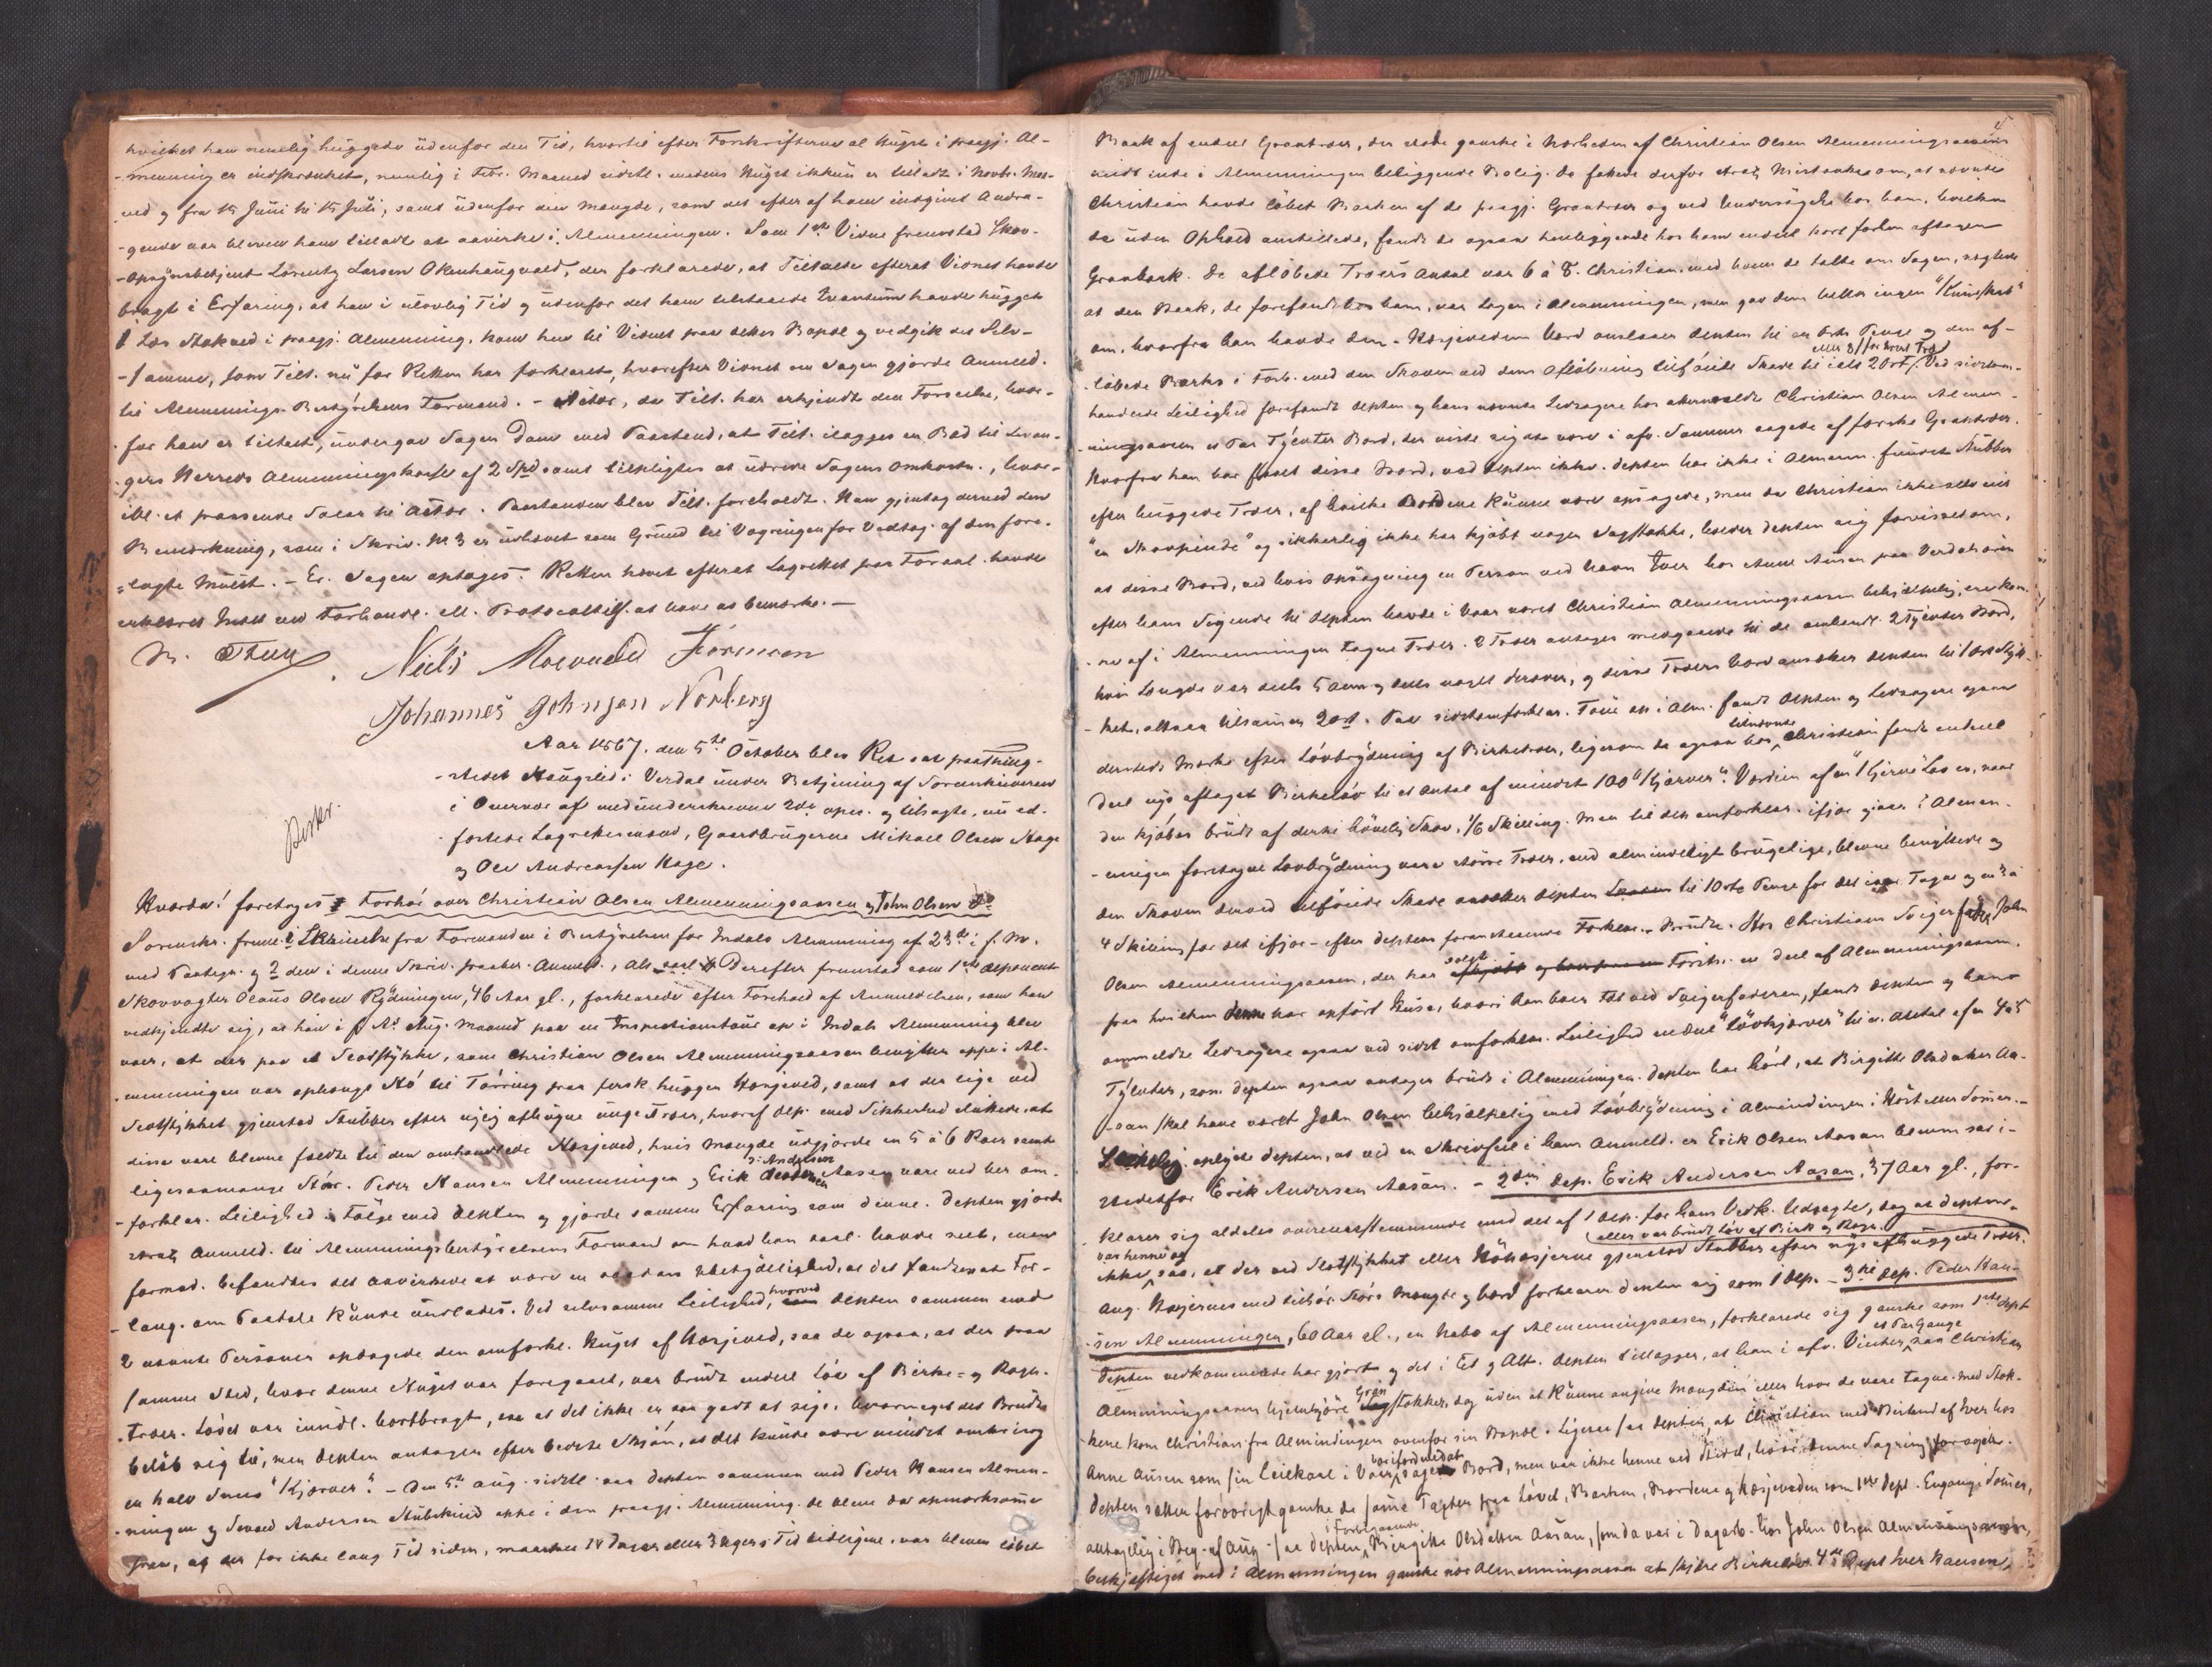 hvilket han nemlig huggede udenfor den Tid, hvortil efter Forskrifterne al Hugst i paagj. Al-
-menning er indskrænket, nemlig i Febr. Maaned sidstl. medens Hugst ikkun er tilladt i Novbr. Maa-
ned og fra 15 Juni til 15 Juli, samt udenfor den Mængde, som det efter af ham indgivet Andra-
-gende var bleven ham tilladt at aavirke i Almenningen. Som 1ste Vidne fremstod Skov-
-opsynsbetjent Lorentz Larsen Okenhaugvald, der forklarede, at Tiltalte efterat Vidnet havde
bragt i Erfaring, at han i ulovlig Tid og udenfor det ham tilstaaede Qvantum havde hugget
Læs Stokved i paagj. Almenning, kom hen til Vidnet paa dettes Bopæl og vedgik det Selv-
-samme, som Tilt. nu for Retten har forklaret, hvorefter Vidnet om Sagen gjorde Anmeld.
til Almennings-Bestyrelsens Formand. - Actor, da Tilt. har erkjendt den Forseelse, hvor-
-for han er tiltalt, undergav Sagen Dom med Paastand, at Tilt. ilægges en Bod til Levan-
-gers Herreds Almenningskasse af 2 Spd samt tilpligtes at udrede Sagens Omkostn., hvor-
ibl. et passende Salær til Actor. Paastanden blev Tilt. foreholdt. Han gjentog derved den
Bemærkning, som i Skriv. No 3 er udhævet som Grund til Vægringen for Vedtag. af den fore-
=lagte Mulct. - Er. Sagen optages. Retten hævet efterat Lagrettet paa Foraal. havde
erklæret Intet ved Forhandl. ell. Protocollatif. at have at bemærke. -
Niels Foruden
Johannes Johnsen Norberg
Aar 1867, den 5te October blev Ret sat paa Thing-
-stedet Haugslid i Verdal under Betjening af Sorenskriveren
i Overvær af medunderskrevne 2de opn. og tilsagte, nu ed-
-fæstede Lagrettesmænd, Gaardbrugerne Mikael Olsen Hage
og Ole Andreassen Hage.
Beskr.
Hvorda! foretoges Forhør over Christian Olsen Almenningsaasen og John Olsen Do
Sorenskr. freml. 1 Skrivelse fra Formanden i Bestyrelsen for Indals Almenning af 23de i f. M.
med Paategn. og 2 den i denne Skriv. paaber. Anmeld., Derefter fremstod som 1ste Deponent
Skovvogter Olaus Olsen Rydningen, 46 Aar gl., forklarede efter Forehold af Anmeldelsen, som han
vedkjendte sig, at han i Aug. Maaned paa en Inspectionstour op i Indals Almenning blev
vaer, at der paa et Jordstykke, som Christian Olsen Almenningsaasen benytter oppe i Al-
-menningen var ophængt Hø til Tørring paa fersk huggen Hæsjeved, samt at der lige ved
Jordstykket gjenstod Stubber efter nylig afhugne unge Træer, hvoraf Dep. med Sikkerhed sluttede, at
disse vare blevne fældte til den omhandlede Hæsjeved, hvis Mængde udgjorde en 5 à 6 Raer samt
ligesaamange Stør. Peder Hansen Almenningen og Erik Andersen Aasan vare ved her om-
-forklar. Leilighed i Følge med Depten og gjorde samme Erfaring som denne. Depten gjorde
strax Anmeld. til Almenningsbestyrelsens Formand om hvad han saal. havde seet, men
formod. befandtes det aavirkede at være en saadan Ubetydelighed, at det fandtes at For-
-lang. om Paatale kunde undlades. Ved selvsamme Leilighed, hvorved Depten sammen med
2 nævnte Personer opdagede den omforkl. Hugst af Hæsjeved, saa de ogsaa, at der paa
samme Sted, hvor denne Hugst var foregaaet, var brudt endeel Løv af Birke- og Rogn-
-træer. Løvet var imidl. bortbragt, saa at det ikke er saa godt at sige, hvormeget det Brudte
beløb sig til, men Depten antager efter bedste Skjøn, at det kunde være mindst omkring
en halv Snees "Kjærver". - Den 5te Aug. sidstl. var Depten sammen med Peder Hansen Almen-
-ningen og Sevald Andersen Stubskind oppe i den paagj. Almenning. De bleve da opmærksomme
paa, at der for ikke lang Tid siden, maaskee 14 Dager eller 3 Ugers Tid tidligere, var bleven løbet
Bark af endeel Grantræer, der stode ganske i Nærheden af Christian Olsen Almenningsaasens
midt inde i Almenningen beliggende Bolig. De fattede derfor strax Mistanke om, at nævnte
Christian havde løbet Barken af de paagj. Grantræer og ved Undersøgelse hos ham, hvilken
de uden Ophold anstillede, fandt de ogsaa henliggende hos ham endeel kort forhen aftagen
Granbark. De afløbede Træers Antal var 6 à 8. Christian, med hvem de talte om Sagen, nægtede
at den Bark, de forefandt hos ham, var tagen i Almenningen, men gav dem heller ingen "Kundskab"
om, hvorfra han havde den. Hæsjevedens Værd anslaaer Depten til en Orts Penge og den af-
-løbede Barks i Forb. med den Skoven ved dens Afløbning tilføiede Skade til ialt 20 ort eller 8 s for hvert Træ. Ved sidstom-
handlede Leilighed forefandt Depten og hans nævnte Ledsagere hos ommeldte Christian Olsen Almen-
-ningsaasen et Par Tylvter Bord, der viste sig at være i afv. Sommer sagede af ferske Grantræer.
Hvorfra han har faaet disse Bord, ved Depten ikke. Depten har ikke i Almenn. fundet Stubber
efter huggede Træer, af hvilke Bordene kunne være opsagede, men da Christian ikke selv eier
"en Skovpinde" og sikkerlig ikke har kjøbt nogen Sagstokke, holder Depten sig forvisset om,
at disse Bord, ved hvis Opsagning en Person ved Navn Iver hos Anne Ausen paa Verdalsøren
efter hans Sigende til Depten havde i Vaar været Christian Almenningsaasen behjælpelig, ere kom-
-ne af i Almenningen tagne Træer. 2 Træer antages medgaaede til de omhandl. 2 Tylvter Bord,
hvis Længde var deels 5 Alen og deels noget derover, og disse Træers Værd ansætter Depten til 1 Ort Styk-
-ket, altsaa tilsammen 2 ort. Paa sidstomforklar. Tour op i Alm. fandt Depten og Ledsagere ogsaa
dersteds Mærke efter Løvbrydning af Birketræer, ligesom de ogsaa hos bemeldte Christian fandt endeel
Deel nys aftaget Birkeløv til et Antal af mindst 100 "Kjærver". Værdien af en "Kjerve" Løv er, naar
den kjøbes brudt af dertil høvelig Skov, 1/6 Skilling. Men til den omforklar. ifjor og iaar i Almen-
-ningen foretagne Løvbrydning vare større Træer, end almindeligt brugelige, blevne benyttede og
den Skoven derved tilføiede Skade ansætter Depten til 10 Orts Penge for det iaar Tagne og en 3 à
4 Skilling for det ifjor - efter Deptens foranstaaende Forklar. - Brudte. Hos Christians Svigerfader John
Olsen Almenningsaasen, der har solgt Førstn. en Deel af Almenningsaasen,
paa hvilken denne har opført Huse, hvori han boer tæt ved Svigerfaderen, fandt Depten og hans
ommeldte Ledsagere ogsaa ved sidst omforklar. Leilighed endeel "Løvkjærver" til et Antal af en 4 à 5
Tylvter, som Depten ogsaa antager brudt i Almenningen. Depten har hørt, at Birgitte Olsdatter Aa-
-san skal have været John Olsen behjælpelig med Løvbrydning i Almindingen i Høst eller Sommer. -
oplyste Depten, at ved en Skrivfeil i hans Anmeld. er Erik Olsen Aasan bleven sat i-
stedetfor Erik Andersen Aasan. - 2den Dep. Erik Andersen Aasan, 37 Aar gl., for-
klarer sig aldeles overensstemmende med det af 1 Dep. for hans Vedk. Udsagte, dog at Deptens
ikke var henne og saa, at der ved Slotstykket eller Høhæsjerne gjenstod Stubber efter nys afhuggede Træer. eller var brudt Løv af Birk og Rogn.
Ang. Hæsjernes med tilhør. Størs Mængde og Værd forklarer Depten sig som 1 Dep. - 3die Dep. Peder Han-
-sen Almenningen, 60 Aar gl., en Nabo af Almenningsaasen, forklarede sig ganske som 1ste Dept
Depten vedkommende har gjort og det i Et og Alt. Depten tillægger, at han i afv. Vinter et Par Gange saa Christian
Almenningsaasen hjemkjøre Gran Sagstokker, dog uden at kunne angive Mængden eller hvor de vare tagne. Med Stok-
-kene kom Christian fra Almindingen ovenfor sin Bopæl. Ligesaa saa Depten, at Christian med Bistand af Iver hos
Anne Ausen som sin Leiekarl i Vaar var ifærd med at sage Bord, men var ikke henne ved Stedet, hvor denne Sagning foregik.
Depten sætter forøvrigt ganske de samme Taxter paa Løvet, Barken, Bordene og Hæsjeveden som 1ste Dept. Engang i Sommer,
antagelig i Beg. af Aug. saa Depten i Forbigaaende Birgitte Olsdatter Aasan, som da var i Dagarb. hos John Olsen Almenningsaasen,
beskjæftiget med i Almenningen ganske nær Almenningsaasen at skjære Birkeløv. 4de Dept Iver Hansen,